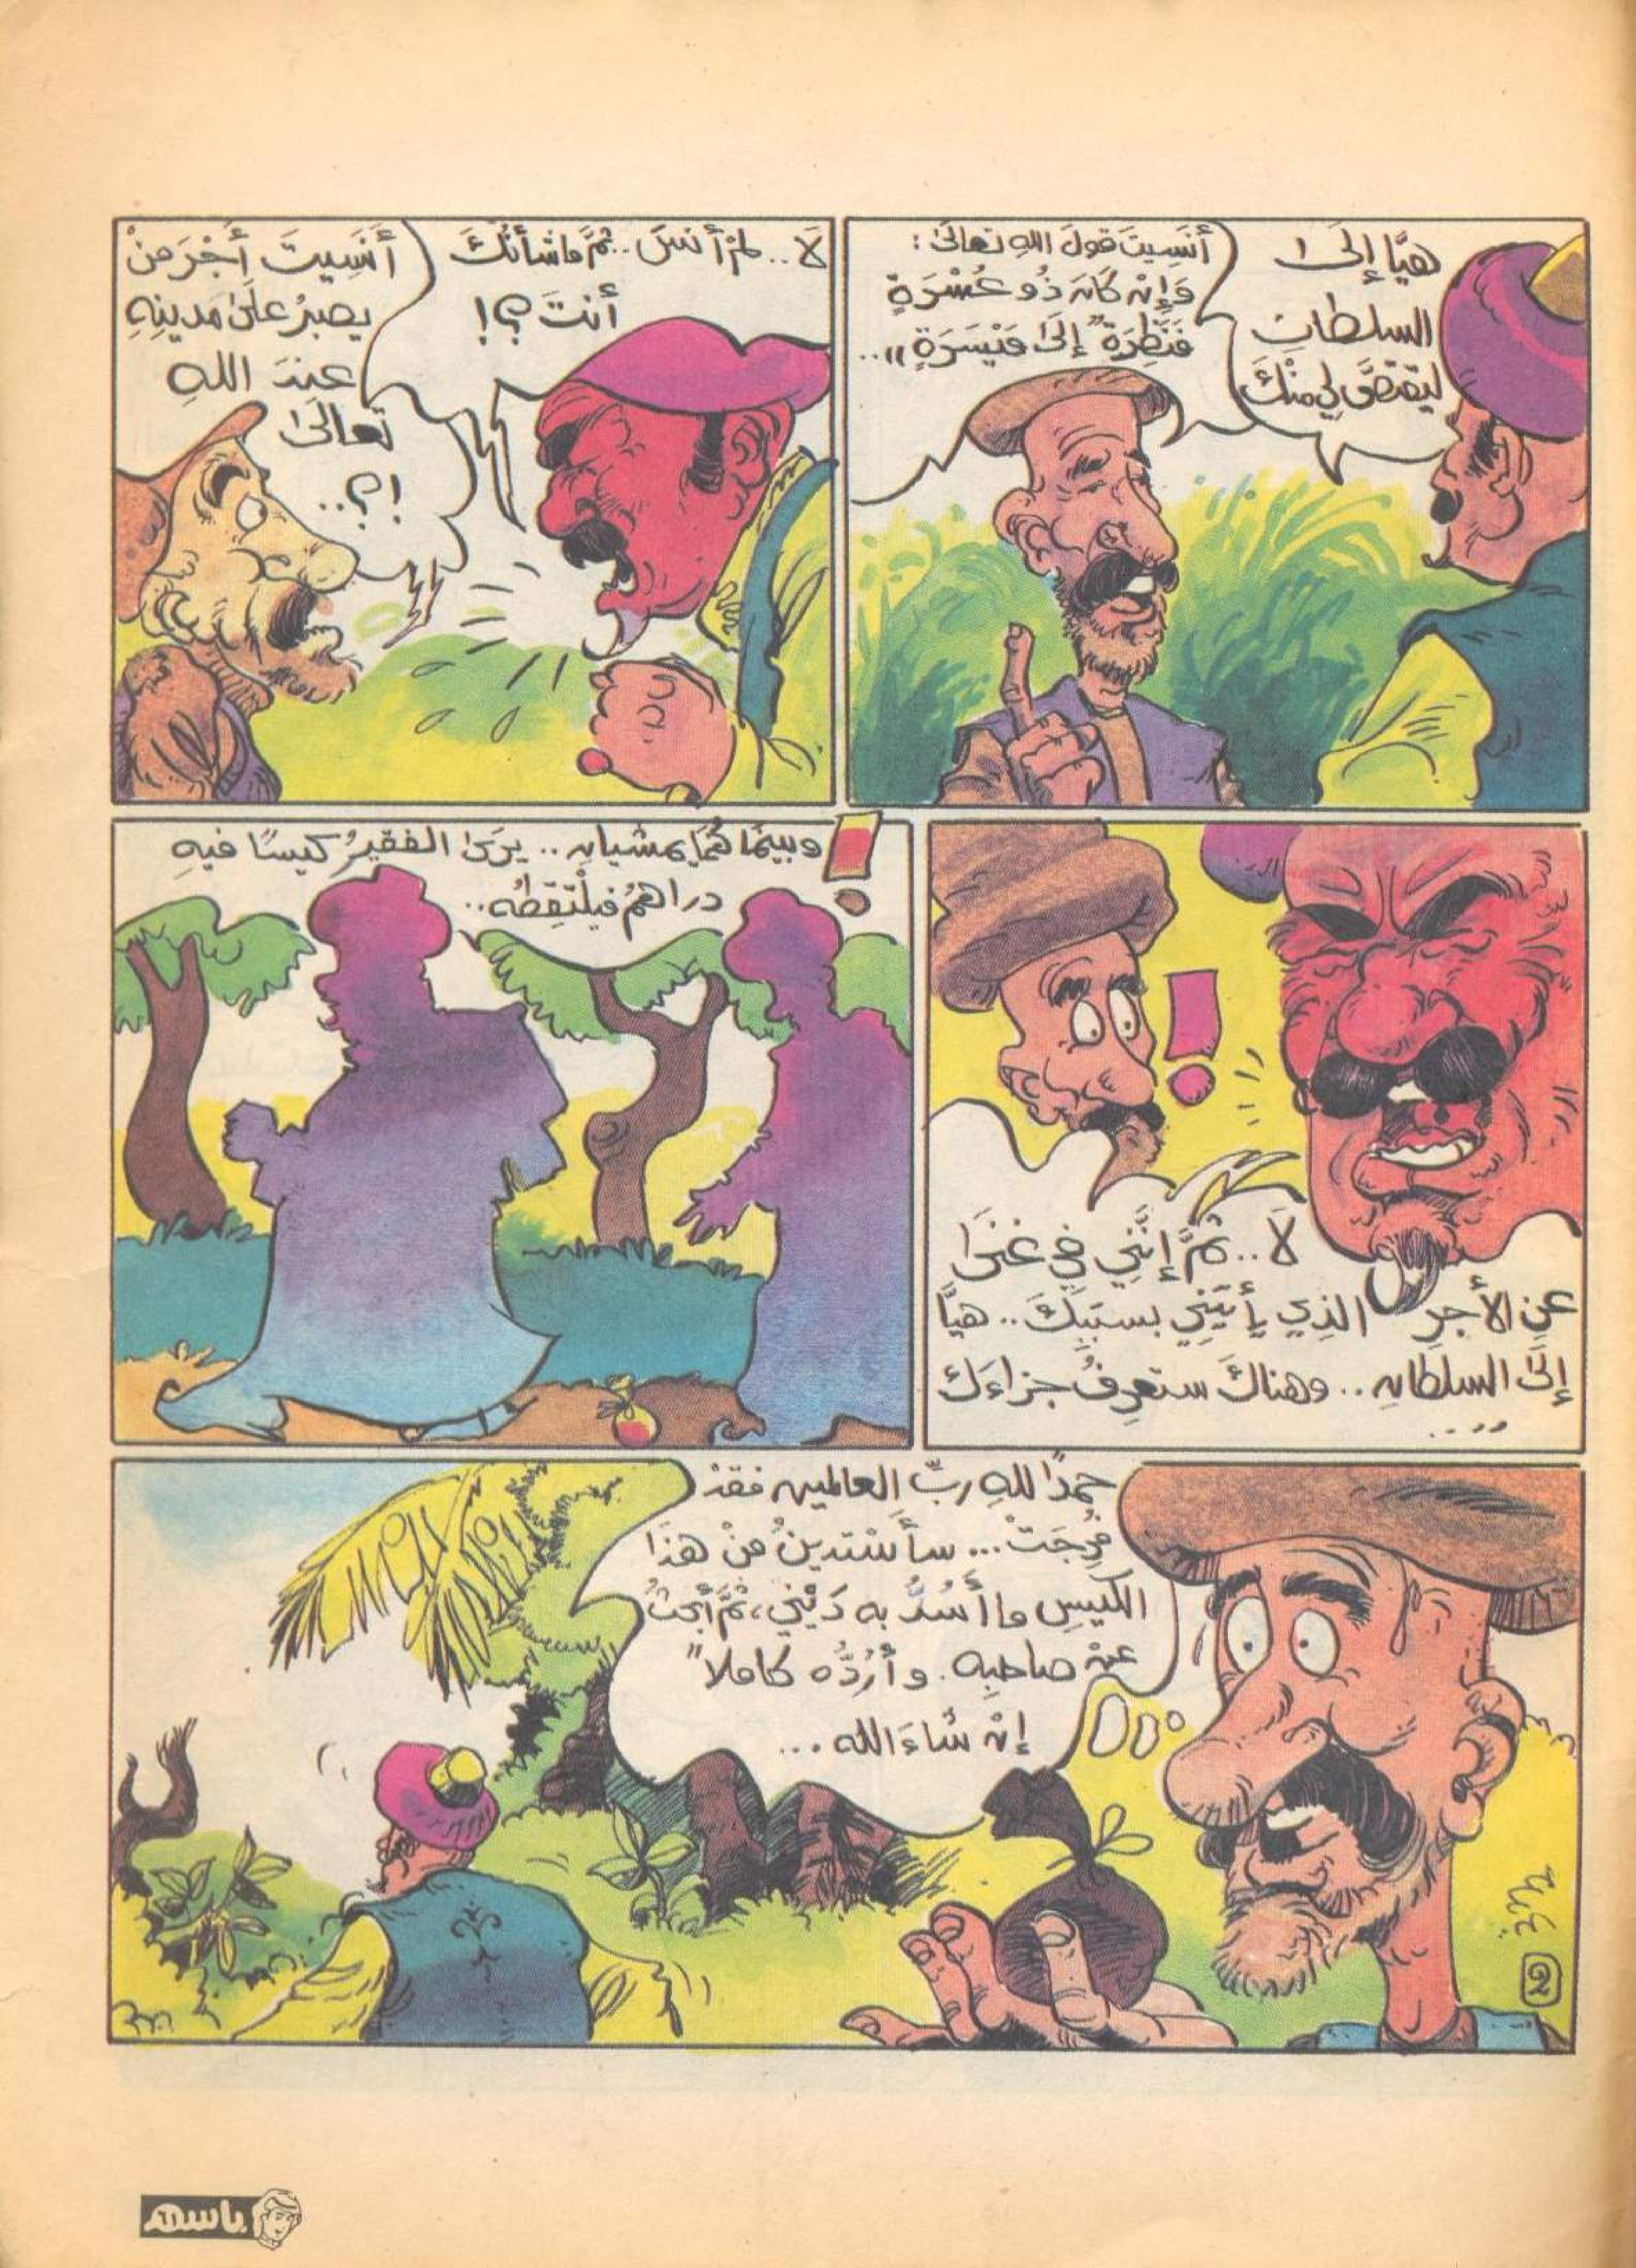 هَيَّا إِلَى
السلطان
ليقتصَّ لِي مِنْكَ
أَنَسِيتَ قولَ اللهِ تعالىَ :
وَإِنْ كَانَ ذُو عُسْرَةٍ
فَنَظِرَةٌ إِلَىَ مَيْسَرَةٍ،، ..
لَا .. لمْ أنسَ .. ثمَّ ما شأنُكَ
أنتَ ؟!
أَنَسِيتَ أَجْرَ مَنْ
يصبرُ علىَ مَدِينِهِ
عندَ اللهِ
تعالَىَ
؟! ..
لَا .. ثمَّ إنَّنِي فِي غنىَ
عنِ الأجرِ الذِي يأتِينِي بسببِكَ .. هيَّا
إلىَ السلطانِ .. وهناكَ ستعرِفُ جزاءَكَ
,, ..
وبينمَا هُمَا يمشيانِ .. يرَىَ الفقيرُ كيسًا فيهِ
دراهمُ فيلْتقِطُه ..
حمدًا للهِ ربِّ العالمين فقدْ
فُرِجَتْ ... سأسْتدينُ مِنْ هذَا
الكيسِ ما أَسُدُّ به دَيْنِي، ثمَّ أبحثُ
عنْ صاحبِه . وأرُدُّه كاملا"
إنْ شاءَ الله ...
2
باسم